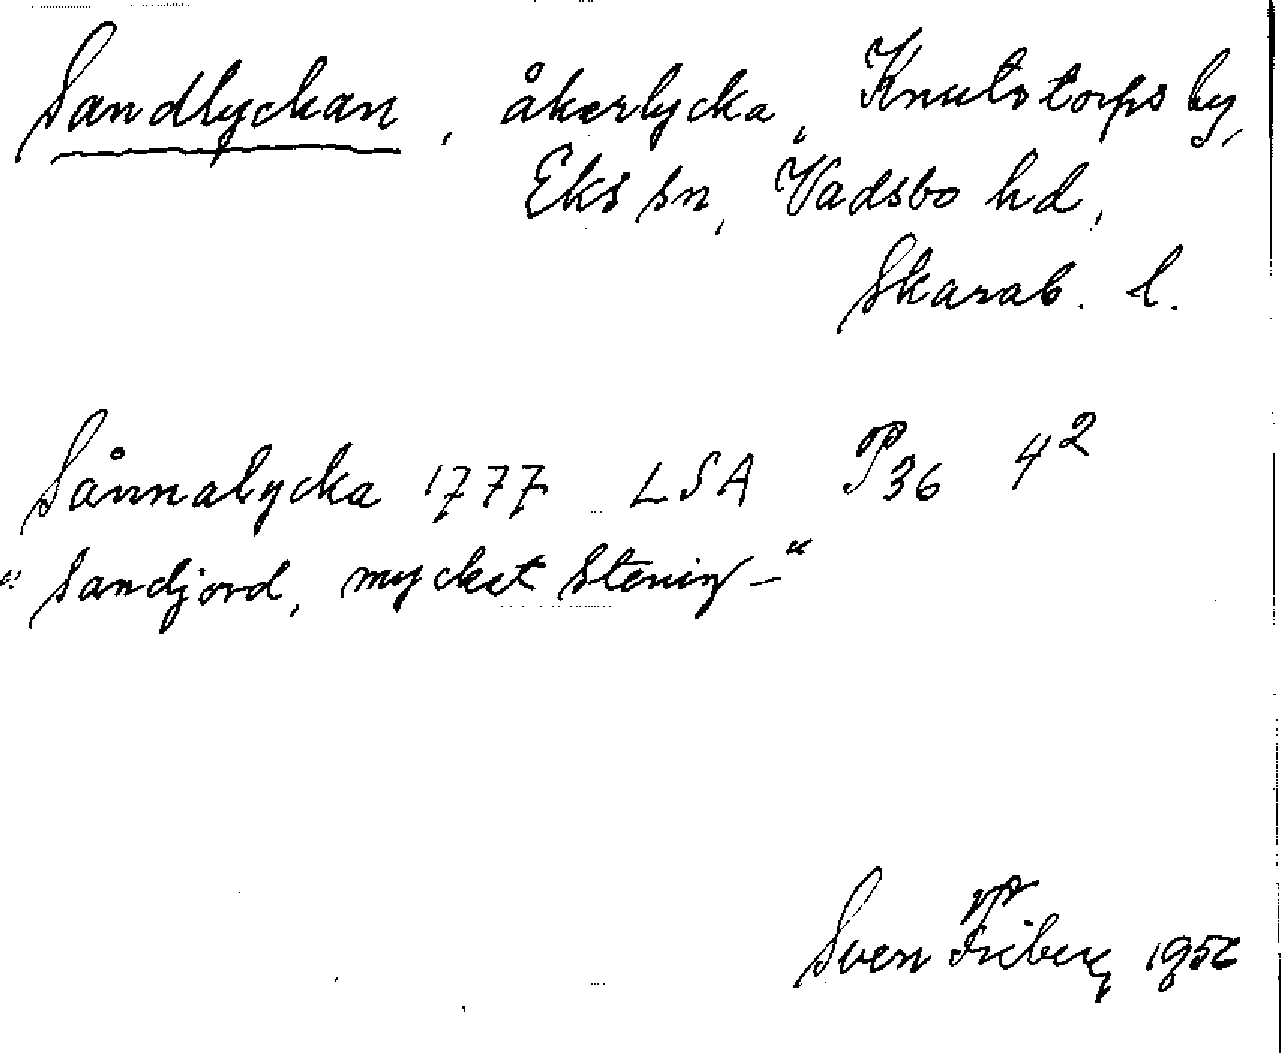 Sandlyckan, åkerlycka, Knutstorps by,
Eks sn, Vadsbo hd,
Skarab. l.
Sånnalycka 1777 LSA P36 4²
"Sandjord, mycket stenig –"
Sven Friberg 1956